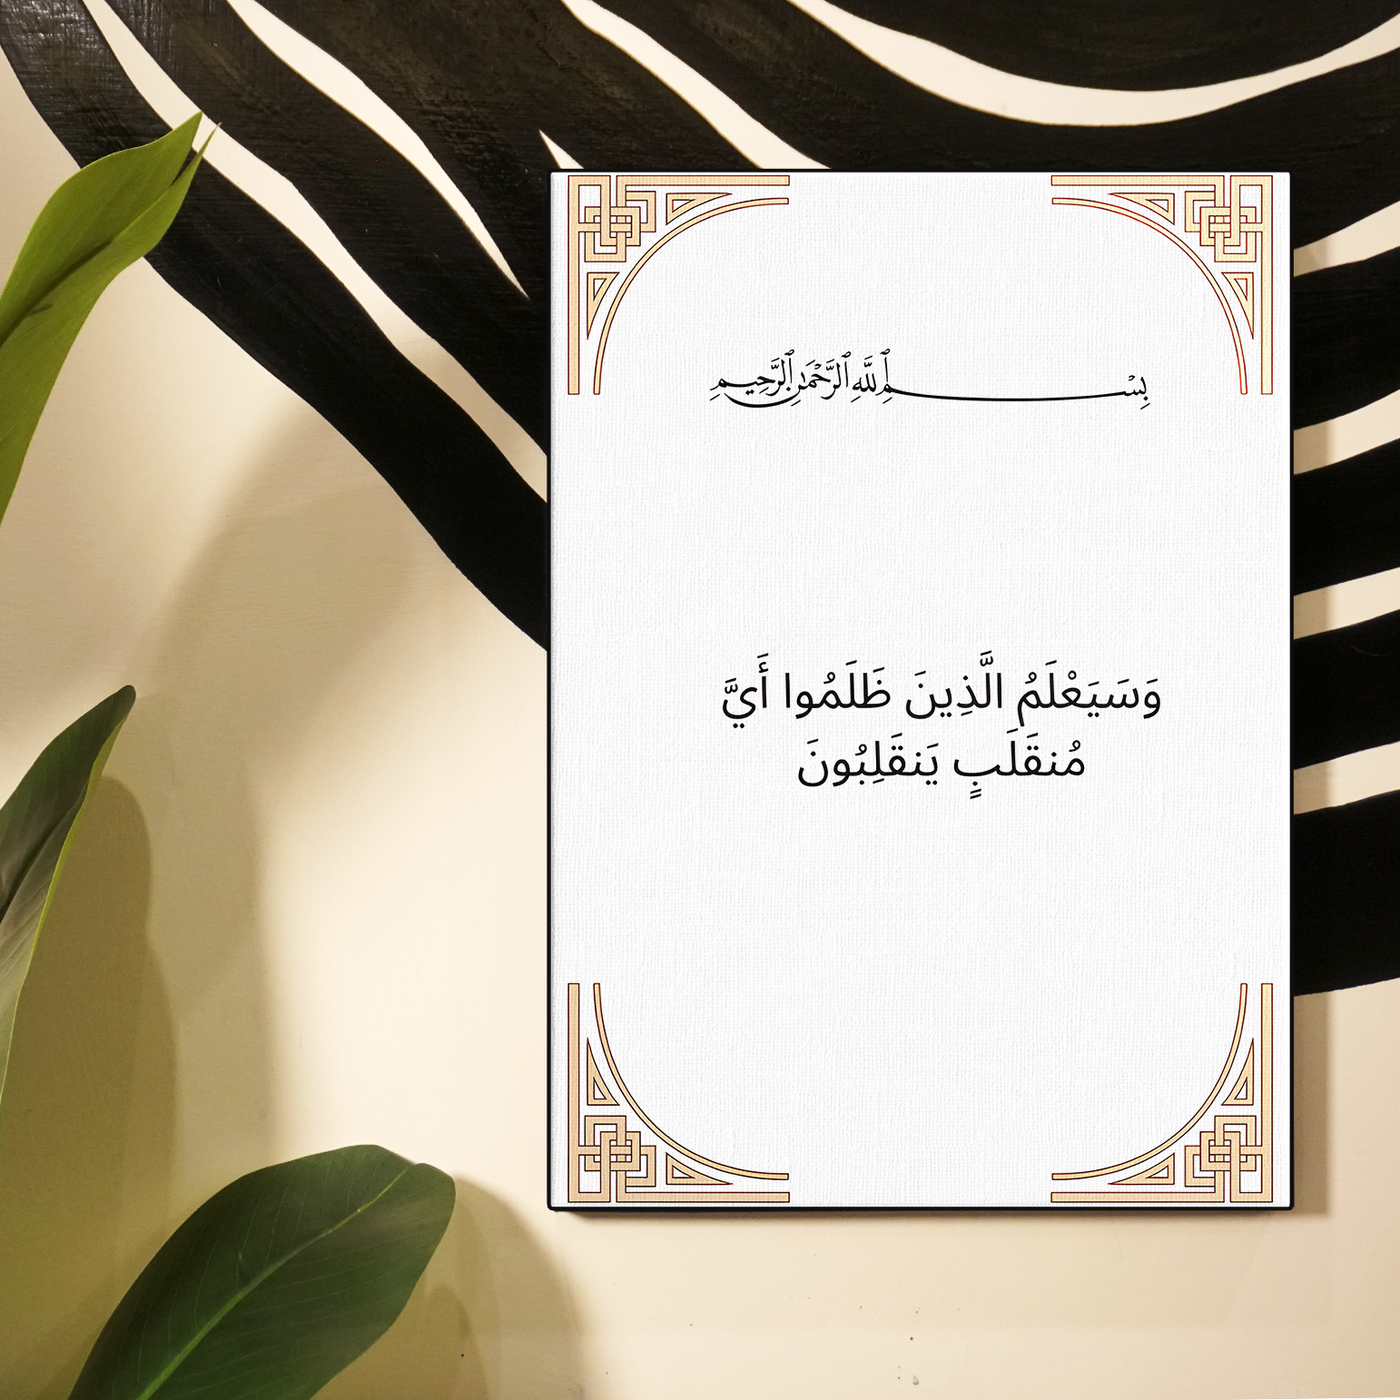 بِسْمِ ٱللَّهِ ٱلرَّحْمَٰنِ ٱلرَّحِيمِ
وَسَيَعْلَمُ الَّذِينَ ظَلَمُوا أَيَّ
مُنقَلَبٍ يَنقَلِبُونَ